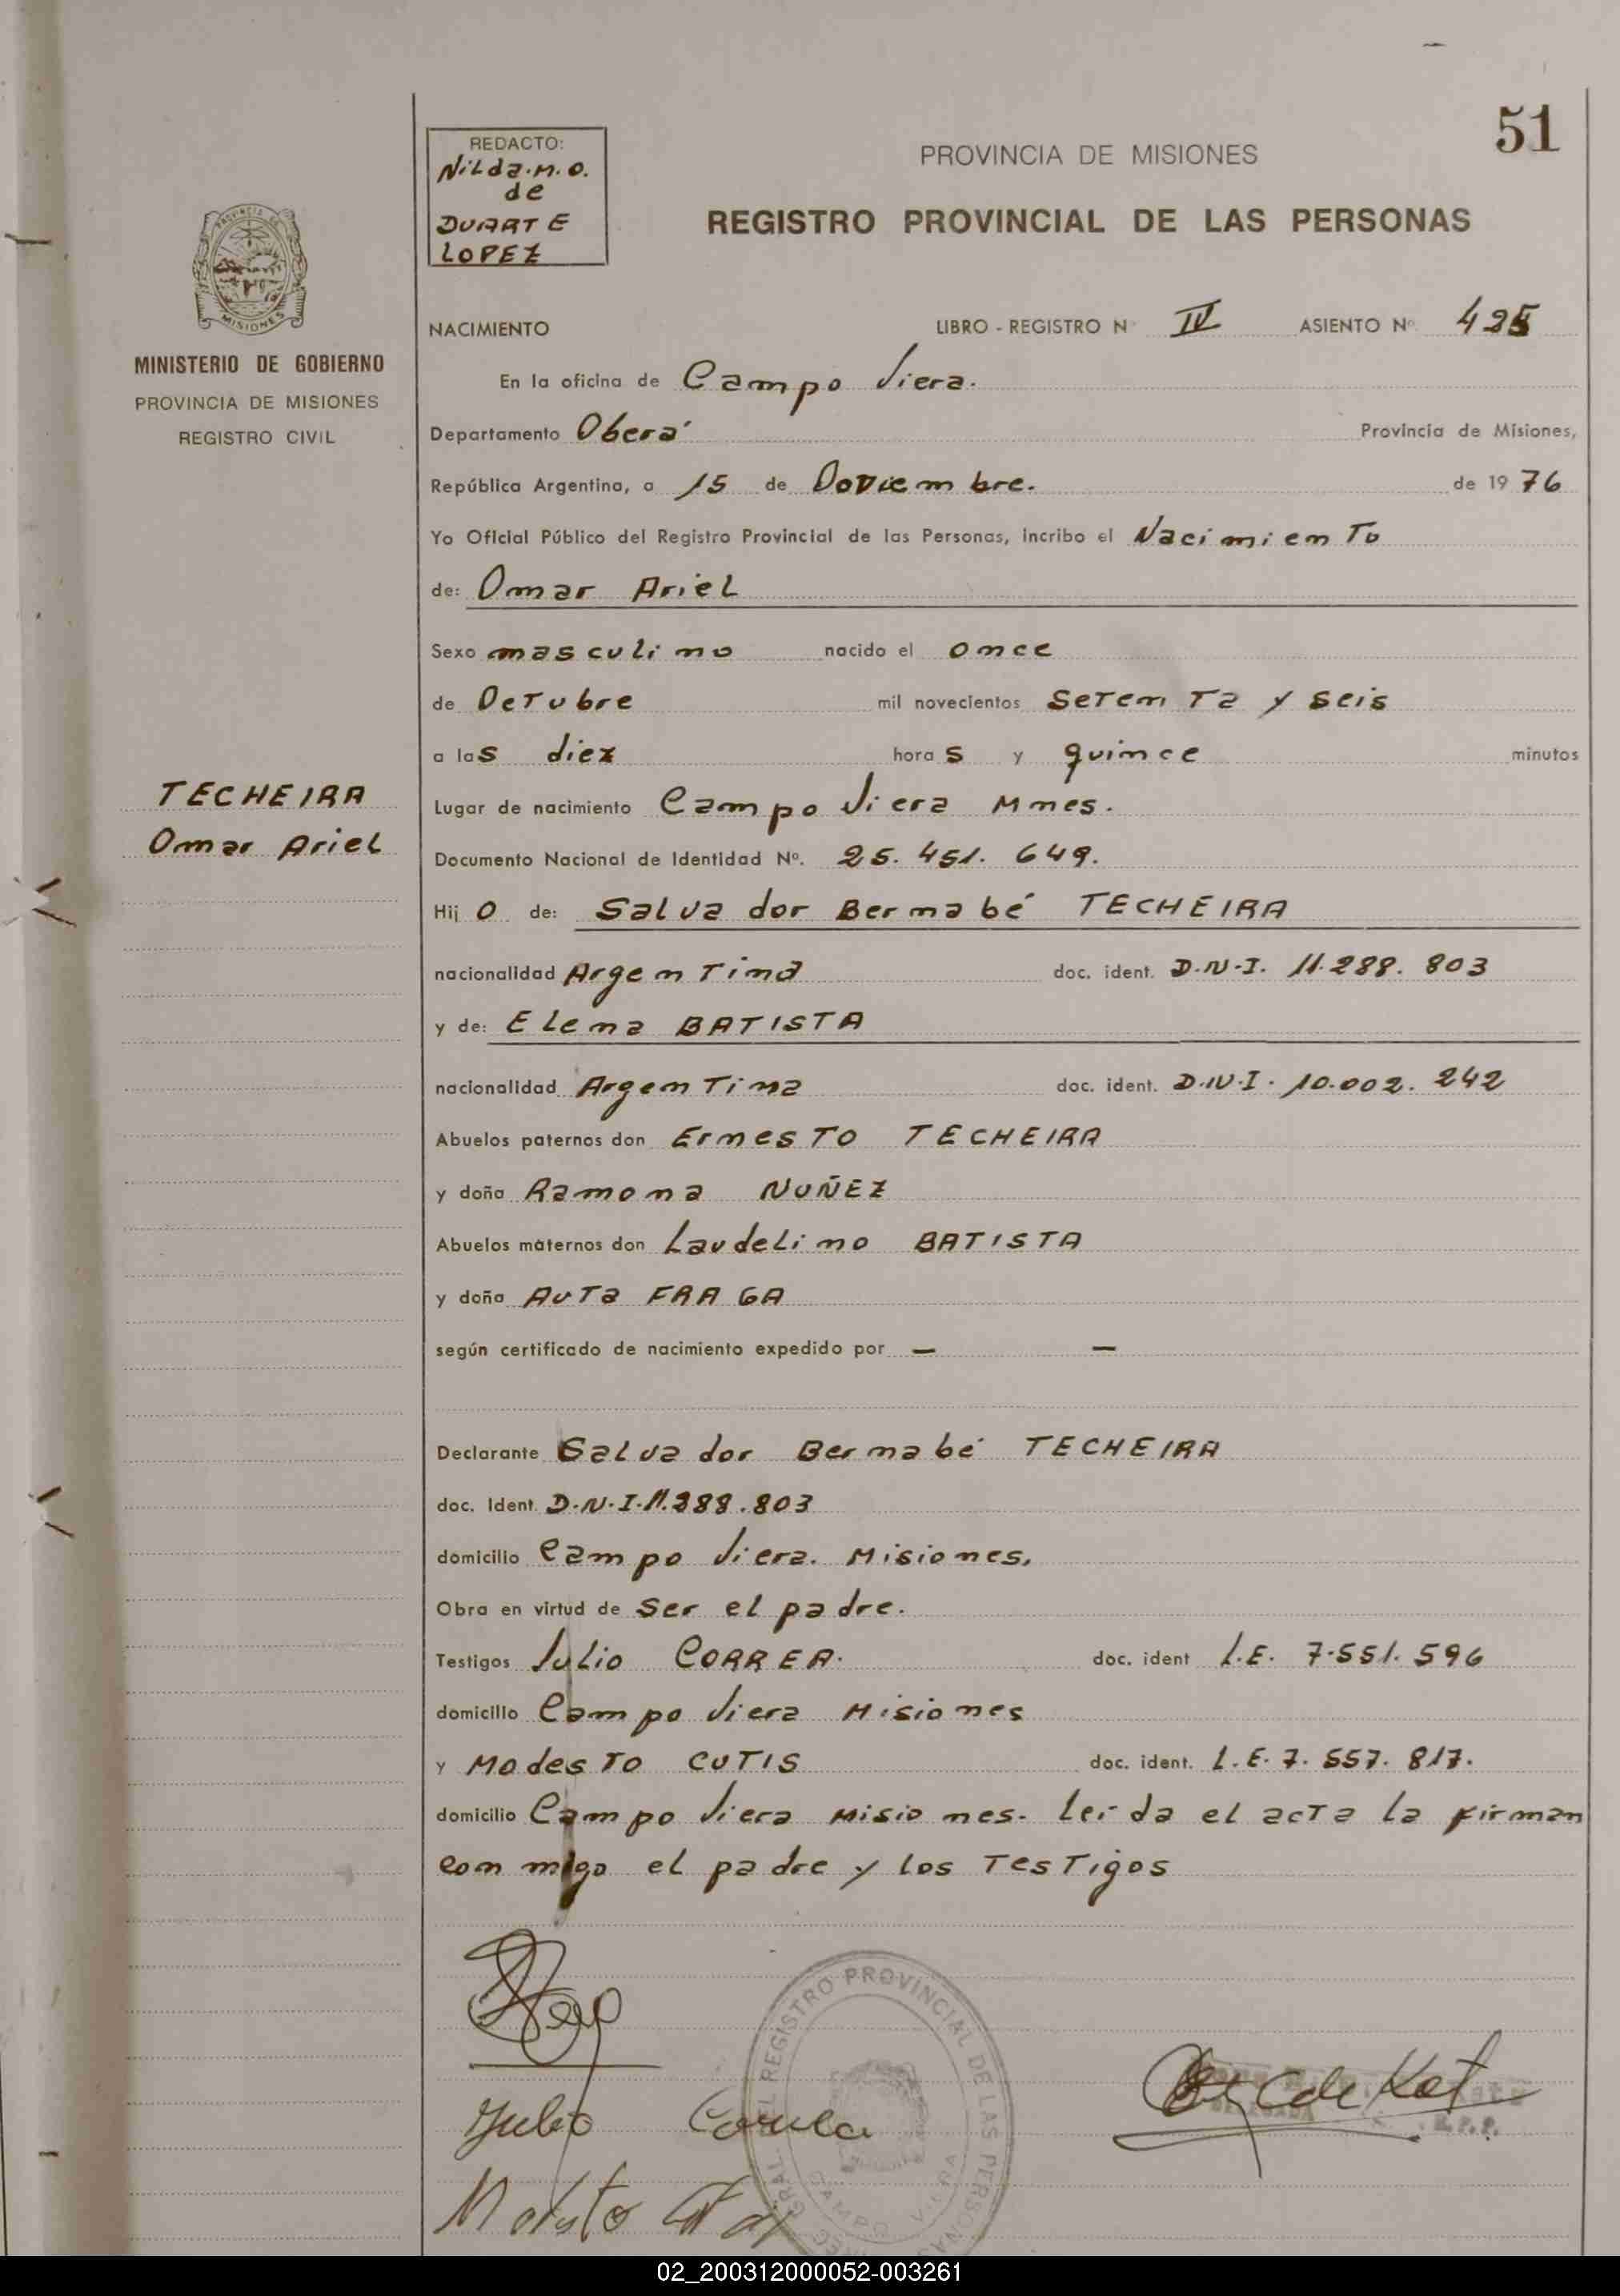 51
REDACTO:
Nilda.M.O.
de
DUARTE
LOPEZ
PROVINCIA DE MISIONES
REGISTRO PROVINCIAL DE LAS PERSONAS
MISIONES
MINISTERIO DE GOBIERNO
PROVINCIA DE MISIONES
REGISTRO CIVIL
NACIMIENTO LIBRO - REGISTRO Nº IV ASIENTO Nº 425
En la oficina de Campo Viera.
Departamento Oberá Provincia de Misiones,
República Argentina, a 15 de Noviembre. de 1976
Yo Oficial Público del Registro Provincial de las Personas, incribo el Nacimiento
de: Omar Ariel
Sexo masculino nacido el once
de Octubre mil novecientos setenta y seis
a las diez horas y quince minutos
TECHEIRA
Omar Ariel
Lugar de nacimiento Campo Viera Mnes.
Documento Nacional de Identidad Nº. 25.451.649.
Hijo de: Salvador Bernabé TECHEIRA
nacionalidad Argentina doc. ident. D.N.I. 11.288.803
y de: Elena BATISTA
nacionalidad Argentina doc. ident. D.N.I. 10.002.242
Abuelos paternos don Ernesto TECHEIRA
y doña Ramona NUÑEZ
Abuelos maternos don Laudelino BATISTA
y doña Auta FRAGA
según certificado de nacimiento expedido por — —
Declarante Salvador Bernabé TECHEIRA
doc. Ident. D.N.I. 11.288.803
domicilio Campo Viera. Misiones.
Obra en virtud de ser el padre.
Testigos Julio CORREA. doc. ident L.E. 7.551.596
domicilio Campo Viera Misiones
y Modesto CUTIS doc. ident. L.E. 7.557.817.
domicilio Campo Viera Misiones. leída el acta la firman
conmigo el padre y los testigos
REGISTRO PROVINCIAL DE LAS PERSONAS
CAMPO VIERA
Julio Correa
Modesto
02_200312000052-003261